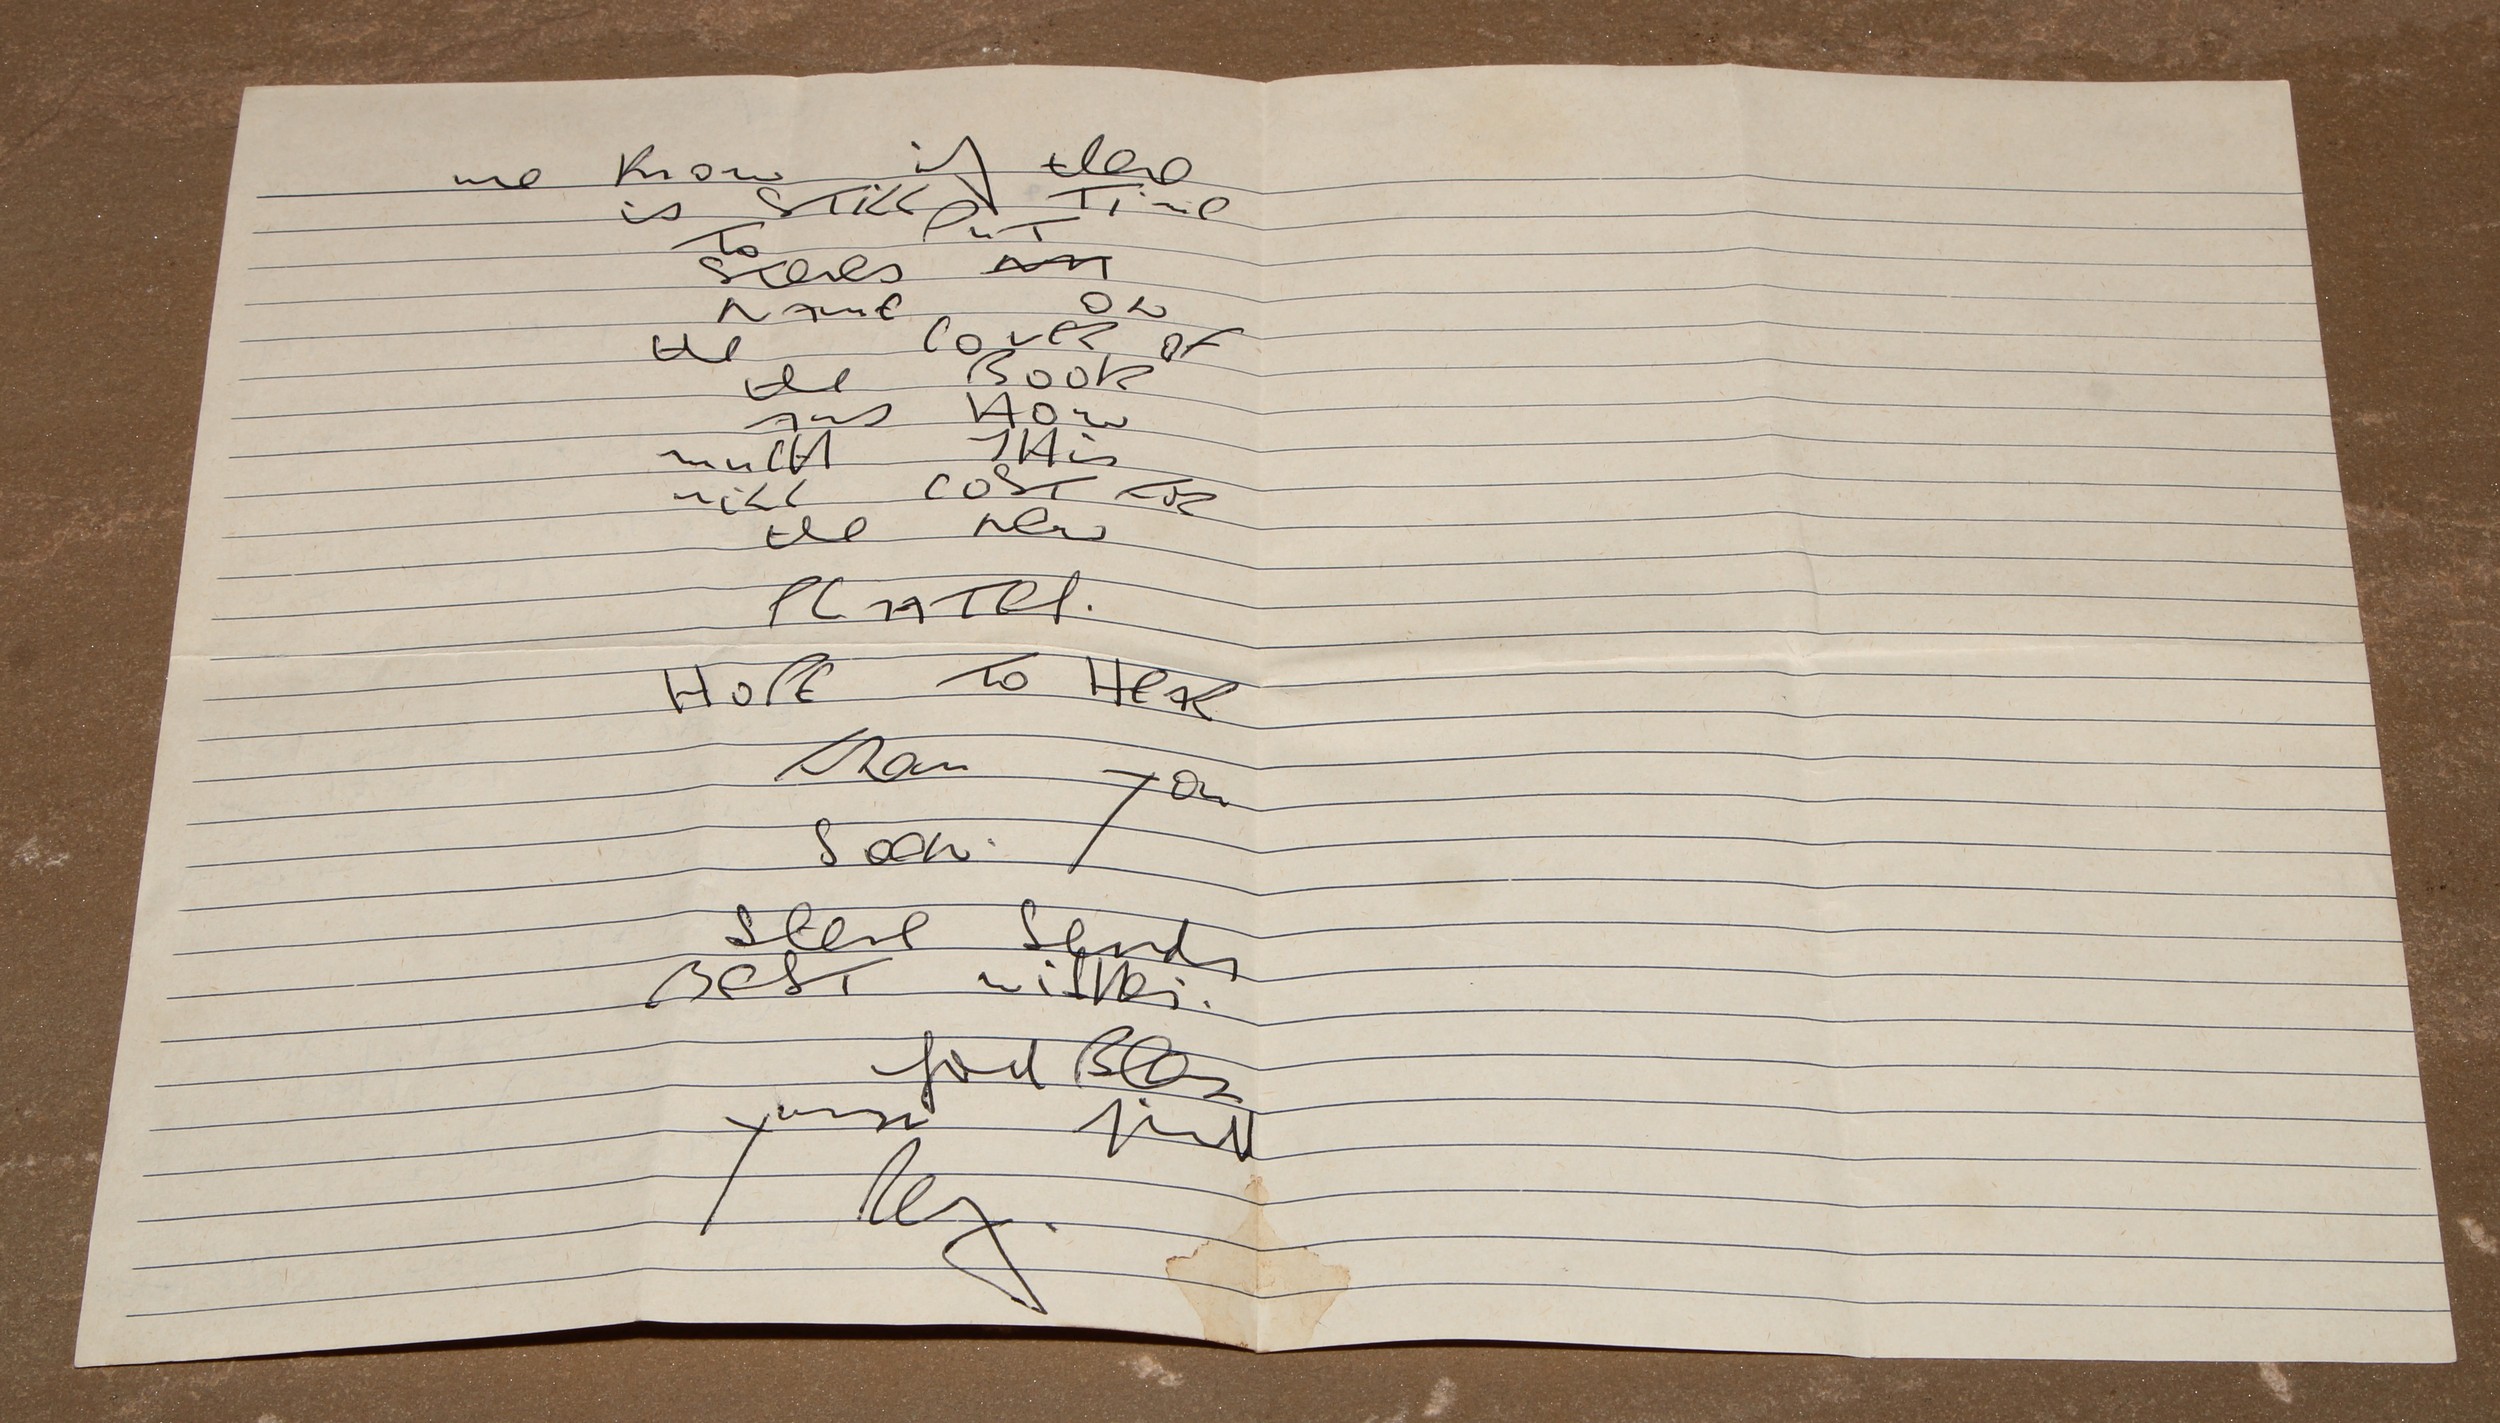 me know if there
is still time
to put
Steves
name on
the cover of
the Book
and How
mucH THis
will cost for
the new
PLATES.
HoPE To HEAR
from you
Soon.
Steve Sends
BEST wisHes.
God Bless
your friend
Reg.